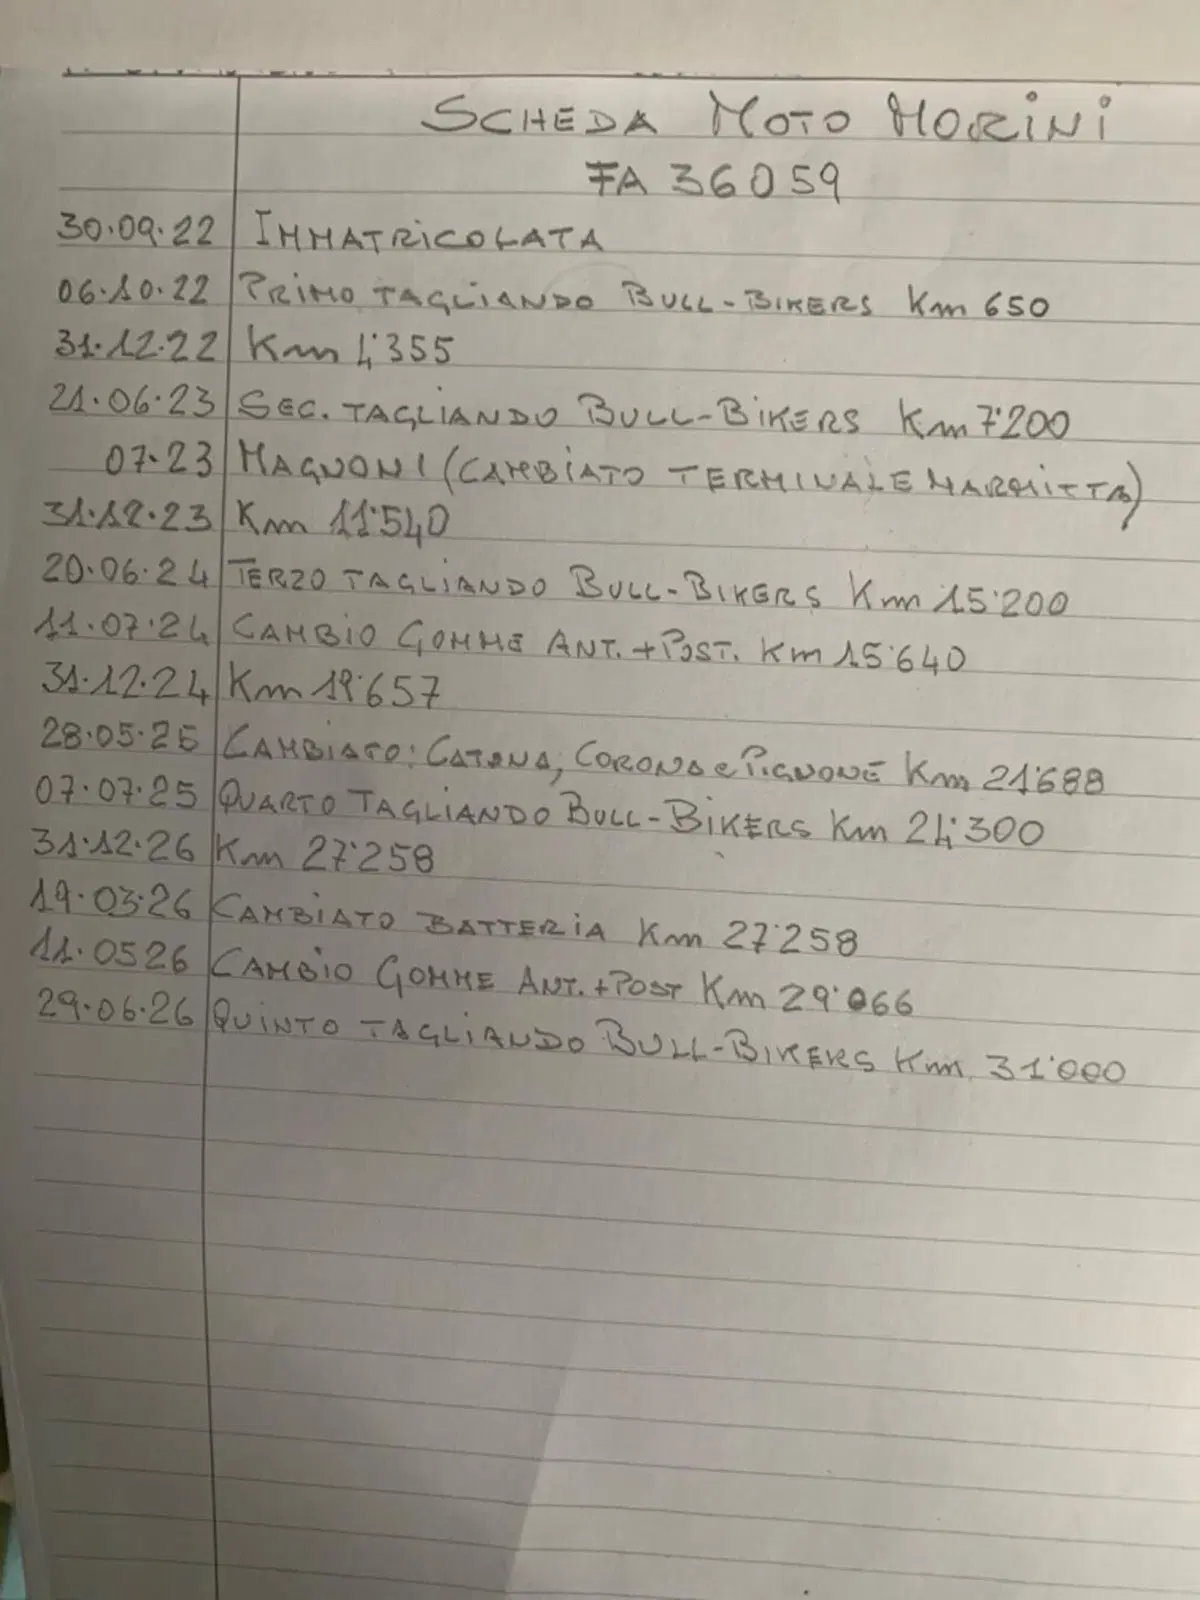 SCHEDA MOTO MORINI
FA 36059
30.09.22 IMMATRICOLATA
06.10.22 PRIMO TAGLIANDO BULL-BIKERS Km 650
31.12.22 Km 4'355
21.06.23 SEC. TAGLIANDO BULL-BIKERS Km 7'200
07.23 MAGNONI (CAMBIATO TERMINALE MARMITTA)
31.12.23 Km 11'540
20.06.24 TERZO TAGLIANDO BULL-BIKERS Km 15'200
11.07.24 CAMBIO GOMME ANT. + POST. Km 15'640
31.12.24 Km 19'657
28.05.25 CAMBIATO: CATENA, CORONA e PIGNONE Km 21'688
07.07.25 QUARTO TAGLIANDO BULL-BIKERS Km 24'300
31.12.26 Km 27'258
19.03.26 CAMBIATO BATTERIA Km 27'258
11.0526 CAMBIO GOMME ANT. + POST Km 29'066
29.06.26 QUINTO TAGLIANDO BULL-BIKERS Km 31'000